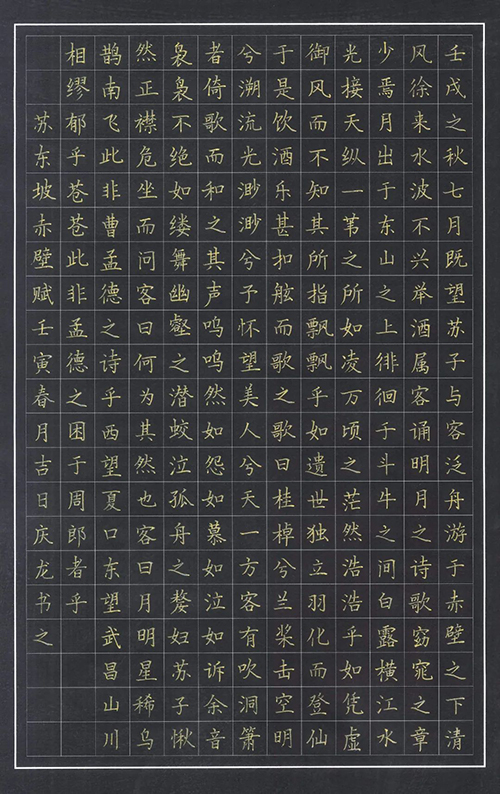 壬戌之秋七月既望苏子与客泛舟游于赤壁之下清
风徐来水波不兴举酒属客诵明月之诗歌窈窕之章
少焉月出于东山之上徘徊于斗牛之间白露横江水
光接天纵一苇之所如凌万顷之茫然浩浩乎如凭虚
御风而不知其所指飘飘乎如遗世独立羽化而登仙
于是饮酒乐甚扣舷而歌之歌曰桂棹兮兰桨击空明
兮溯流光渺渺兮予怀望美人兮天一方客有吹洞箫
者倚歌而和之其声呜呜然如怨如慕如泣如诉余音
袅袅不绝如缕舞幽壑之潜蛟泣孤舟之嫠妇苏子愀
然正襟危坐而问客曰何为其然也客曰月明星稀乌
鹊南飞此非曹孟德之诗乎西望夏口东望武昌山川
相缪郁乎苍苍此非孟德之困于周郎者乎
苏东坡赤壁赋壬寅春月吉日庆龙书之